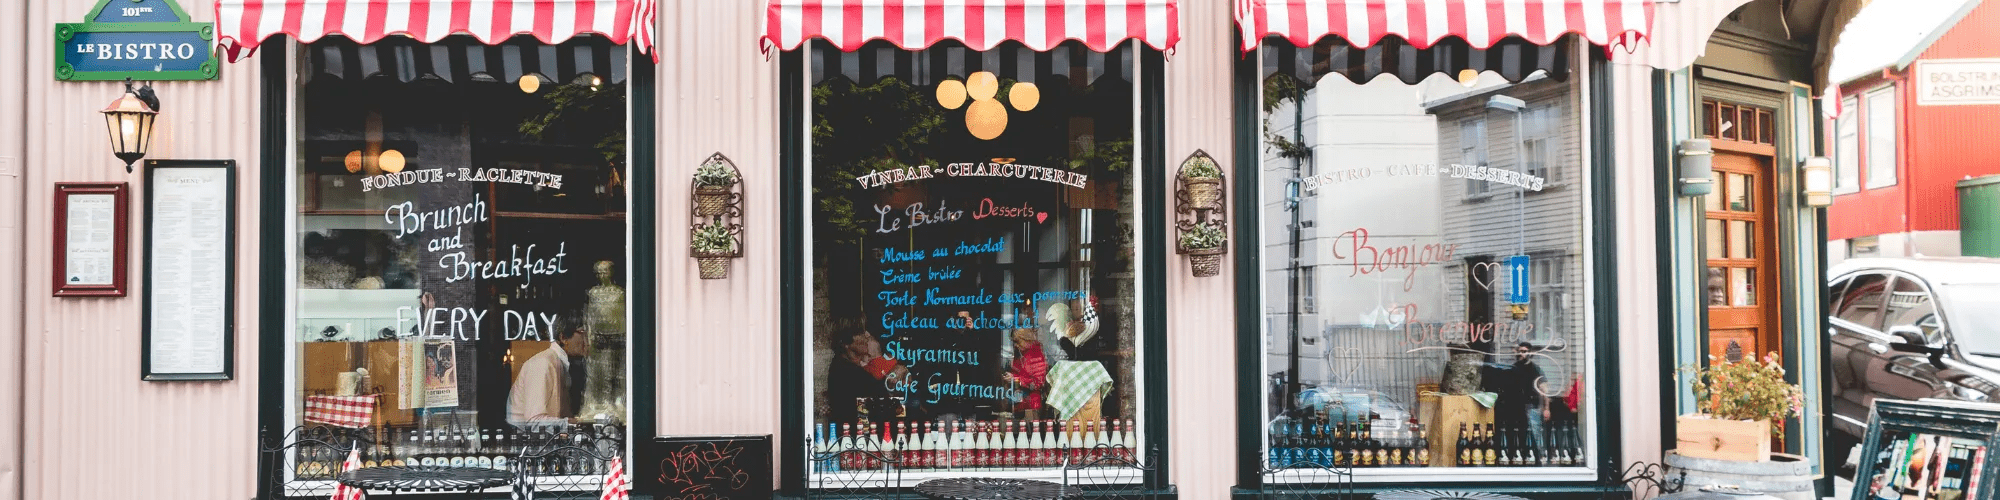 101 BVK
LE BISTRO
MENU
FONDUE ~ RACLETTE
Brunch
and
Breakfast
EVERY DAY
VÍNBAR ~ CHARCUTERIE
Le Bistro Desserts
Mousse au chocolat
Crème brûlée
Torte Normande aux pommes
Gateau au chocolat
Skyramisu
Café Gourmand
BISTRO ~ CAFE ~ DESSERTS
Bonjour
Bienvenue
BOLSTRUN
ÁSGRÍMS